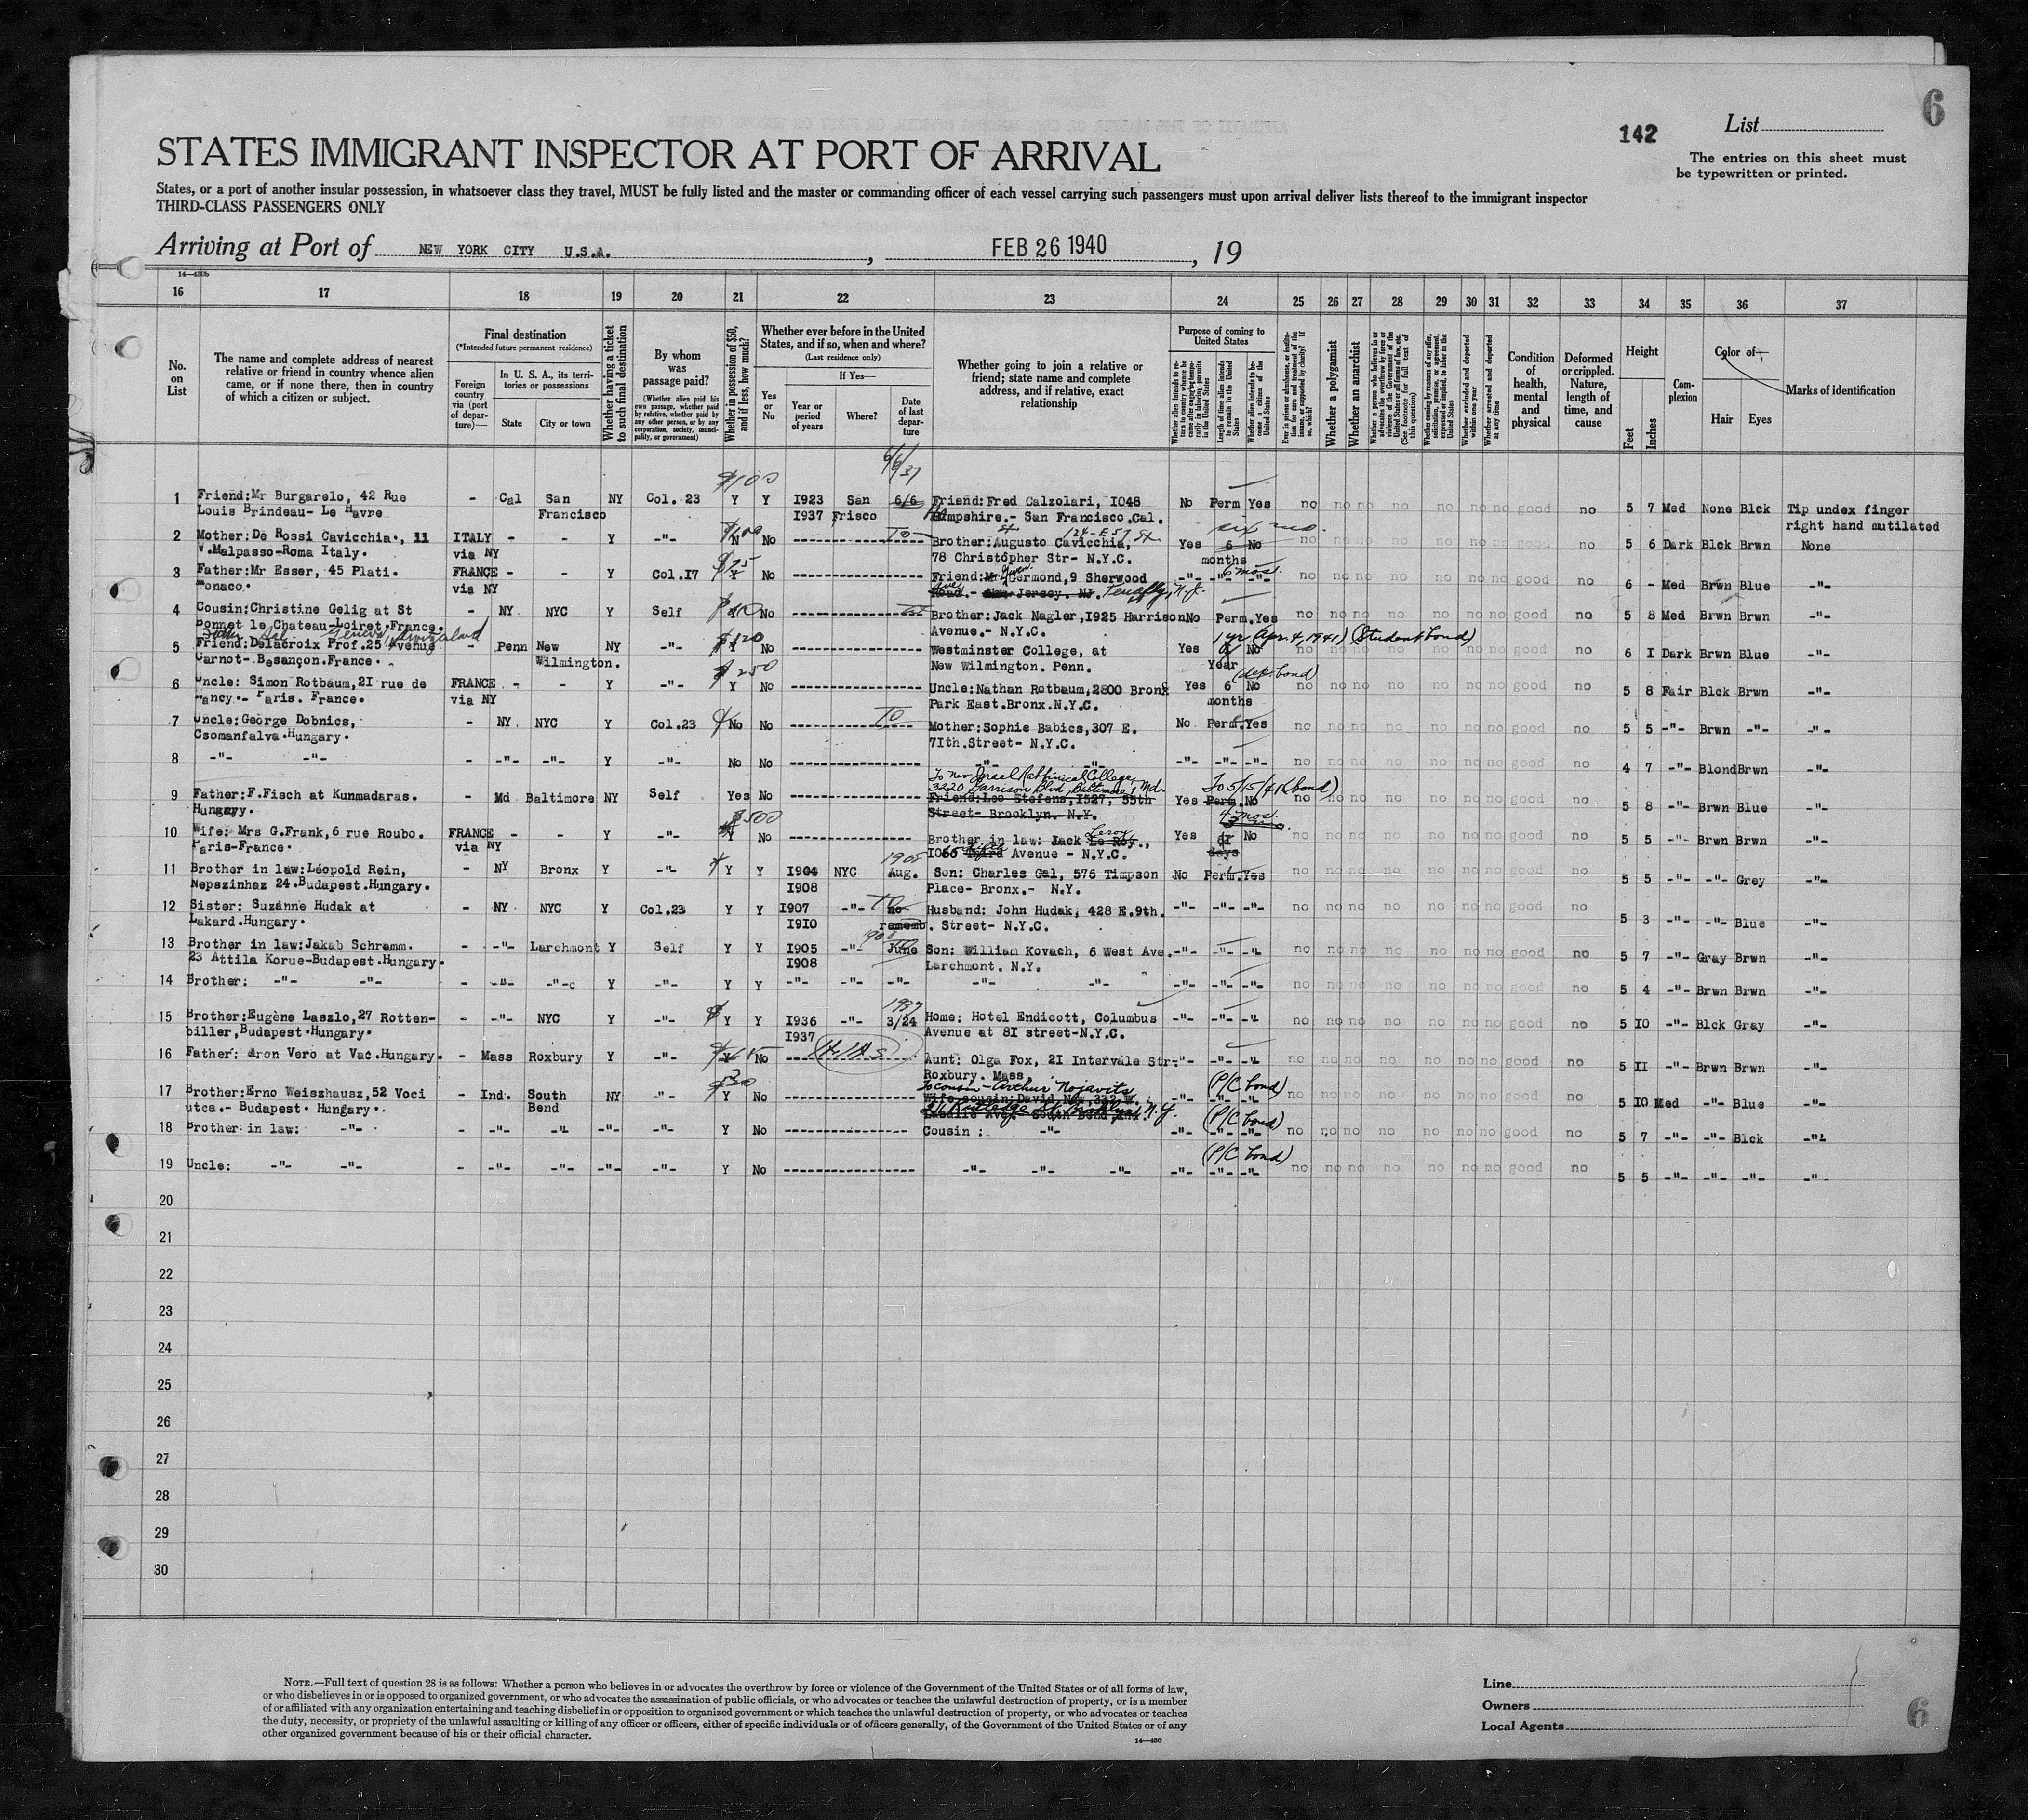 6
142
List
The entries on this sheet must
be typewritten or printed.
STATES IMMIGRANT INSPECTOR AT PORT OF ARRIVAL
States, or a port of another insular possession, in whatsoever class they travel, MUST be fully listed and the master or commanding officer of each vessel carrying such passengers must upon arrival deliver lists thereof to the immigrant inspector
THIRD-CLASS PASSENGERS ONLY
Arriving at Port of NEW YORK CITY U.S.A. , FEB 26 1940 , 19
14—430b
16 17 18 19 20 21 22 23 24 25 26 27 28 29 30 31 32 33 34 35 36 37
No. on List
The name and complete address of nearest relative or friend in country whence alien came, or if none there, then in country of which a citizen or subject.
Final destination
(*Intended future permanent residence)
Foreign country via (port of departure)—
In U. S. A., its territories or possessions
State
City or town
Whether having a ticket to such final destination
By whom was passage paid?
(Whether alien paid his own passage, whether paid by relative, whether paid by any other person, or by any corporation, society, municipality, or government)
Whether in possession of $50, and if less, how much?
Whether ever before in the United States, and if so, when and where?
(Last residence only)
Yes or No
If Yes—
Year or period of years
Where?
Date of last departure
Whether going to join a relative or friend; state name and complete address, and if relative, exact relationship
Purpose of coming to United States
Whether alien intends to return to country whence he came after engaging temporarily in laboring pursuits in the United States
Length of time alien intends to remain in the United States
Whether alien intends to become a citizen of the United States
Ever in prison or almshouse, or institution for care and treatment of the insane, or supported by charity? If so, which?
Whether a polygamist
Whether an anarchist
Whether a person who believes in or advocates the overthrow by force or violence of the Government of the United States or all forms of law, etc. (See footnote for full text of this question)
Whether coming by reasons of any offer, solicitation, promise, or agreement, expressed or implied, to labor in the United States
Whether excluded and deported within one year
Whether arrested and deported at any time
Condition of health, mental and physical
Deformed or crippled. Nature, length of time, and cause
Height
Feet
Inches
Complexion
Color of—
Hair
Eyes
Marks of identification
6/6/37
$100
1 Friend:Mr Burgarelo, 42 Rue - Cal San NY Col. 23 Y Y I923 San 6/6 Friend:Fred Calzolari, I048 No Perm Yes no no no no no no no good no 5 7 Med None Blck Tip undex finger
Louis Brindeau- Le Havre Francisco I937 Frisco Hampshire.- San Francisco.Cal. right hand mutilated
$100 TO 124-E 57 St six mo.
2 Mother:De Rossi Cavicchia., 11 ITALY - - Y -"- N No Brother:Augusto Cavicchia, Yes 6 No no no no no no no no good no 5 6 Dark Blck Brwn None
V.Malpasso-Roma Italy. via NY 78 Christopher Str- N.Y.C. months
$25 6 mos.
3 Father:Mr Esser, 45 Plati. FRANCE - - Y Col.I7 Y No Friend:Mr Germond,9 Sherwood -"- -"- -"- no no no no no no no good no 6 - Med Brwn Blue -"-
Monaco. via NY Road.- New Jersey. NJ. Tenafly, N.J.
4 Cousin:Christine Gelig at St - NY NYC Y Self No Brother: Jack Nagler,I925 Harrison No Perm.Yes no no no no no no no good no 5 8 Med Brwn Brwn -"-
Bonnet le Chateau-Loiret.France. Avenue.- N.Y.C.
Geneva, Switzerland $120 1 yr (Apr. 4, 1941) (Student bond)
5 Friend:Delacroix Prof.25 Avenue - Penn New NY -"- Y No Westminster College, at Yes No no no no no no no no good no 6 I Dark Brwn Blue -"-
Carnot- Besançon.France. Wilmington. New Wilmington. Penn. Year
$250 (dep. bond)
6 Uncle: Simon Rotbaum,2I rue de FRANCE - - Y -"- Y No Uncle:Nathan Rotbaum,2800 Bronx Yes 6 No no no no no no no no good no 5 8 Fair Blck Brwn -"-
Nancy.- Paris. France. via NY Park East.Bronx.N.Y.C. months
TO
7 Uncle:George Dobnics, - NY NYC Y Col.23 No No Mother:Sophie Babics,307 E. No Perm.Yes no no no no no no no good no 5 5 -"- Brwn -"- -"-
Csomanfalva.Hungary. 7Ith.Street- N.Y.C.
8 -"- -"- - -"- -"- Y No No -"- -"- -"- -"- -"- no no no no no no no good no 4 7 -"- Blond Brwn -"-
To Ner Israel Rabbinical College,
3220 Garrison Blvd, Baltimore, Md. To 5/15/41 (bond)
9 Father:F.Fisch at Kunmadaras. - Md Baltimore NY Self Yes No Friend:Leo Stefens,I527, 55th Yes Perm. No no no no no no no no good no 5 8 -"- Brwn Blue -"-
Hungary. Street- Brooklyn. N.Y.
$500 4 mos.
10 Wife: Mrs G.Frank,6 rue Roubo. FRANCE - - Y -"- Y No Brother in law: Jack Le Roy., Leroy Yes No no no no no no no no good no 5 5 -"- Brwn Brwn -"-
Paris-France. via NY Avenue - N.Y.C. days
1908
11 Brother in law:Léopold Rein, - NY Bronx Y -"- Y Y I904 NYC Aug. Son: Charles Gal, 576 Timpson No Perm.Yes no no no no no no no good no 5 5 -"- -"- Grey -"-
Nepszinhaz 24.Budapest.Hungary. I908 Place- Bronx.- N.Y.
12 Sister: Suzanne Hudak at - NY NYC Y Col.23 Y Y I907 -"- no Husband: John Hudak, 428 E.9th. -"- -"- -"- no no no no no no no good no 5 3 -"- -"- Blue -"-
Lakard.Hungary. I9I0 rememb. Street- N.Y.C.
1908
13 Brother in law:Jakab Schremm. - -"- Larchmont Y Self Y Y I905 -"- June Son: William Kovach, 6 West Ave. -"- -"- -"- no no no no no no no good no 5 7 -"- Gray Brwn -"-
23 Attila Korue-Budapest.Hungary. I908 Larchmont. N.Y.
14 Brother: -"- -"- - -"- -"- Y -"- Y Y -"- -"- -"- -"- -"- -"- -"- -"- no no no no no no no good no 5 4 -"- Brwn Brwn -"-
1937
15 Brother:Eugène Laszlo,27 Rotten- - -"- NYC Y -"- Y Y I936 -"- 3/24 Home: Hotel Endicott, Columbus -"- -"- -"- no no no no no no no good no 5 I0 -"- Blck Gray -"-
biller,Budapest.Hungary. I937 Avenue at 8I street-N.Y.C.
16 Father: Aron Vero at Vac.Hungary. - Mass Roxbury Y -"- No Aunt: Olga Fox, 2I Intervale Str. -"- -"- -"- no no no no no no no good no 5 II -"- Brwn Brwn -"-
Roxbury. Mass.
To cousin - Arthur Nojavits (P/C bond)
17 Brother:Erno Weiszhausz,52 Voci - Ind. South NY -"- Y No -"- -"- -"- no no no no no no no good no 5 I0 Med -"- Blue -"-
utca.- Budapest. Hungary. Bend Rutledge St. Brooklyn, N.Y. (P/C bond)
18 Brother in law: -"- - -"- -"- -"- -"- Y No Cousin : -"- -"- -"- -"- no no no no no no no good no 5 7 -"- -"- Blck -"-
(P/C bond)
19 Uncle: -"- -"- - -"- -"- -"- -"- Y No -"- -"- -"- -"- -"- -"- no no no no no no no good no 5 5 -"- -"- -"- -"-
20
21
22
23
24
25
26
27
28
29
30
NOTE.—Full text of question 28 is as follows: Whether a person who believes in or advocates the overthrow by force or violence of the Government of the United States or of all forms of law,
or who disbelieves in or is opposed to organized government, or who advocates the assassination of public officials, or who advocates or teaches the unlawful destruction of property, or is a member
of or affiliated with any organization entertaining and teaching disbelief in or opposition to organized government or which teaches the unlawful destruction of property, or who advocates or teaches
the duty, necessity, or propriety of the unlawful assaulting or killing of any officer or officers, either of specific individuals or of officers generally, of the Government of the United States or of any
other organized government because of his or their official character.
14—430
Line
Owners
Local Agents
6